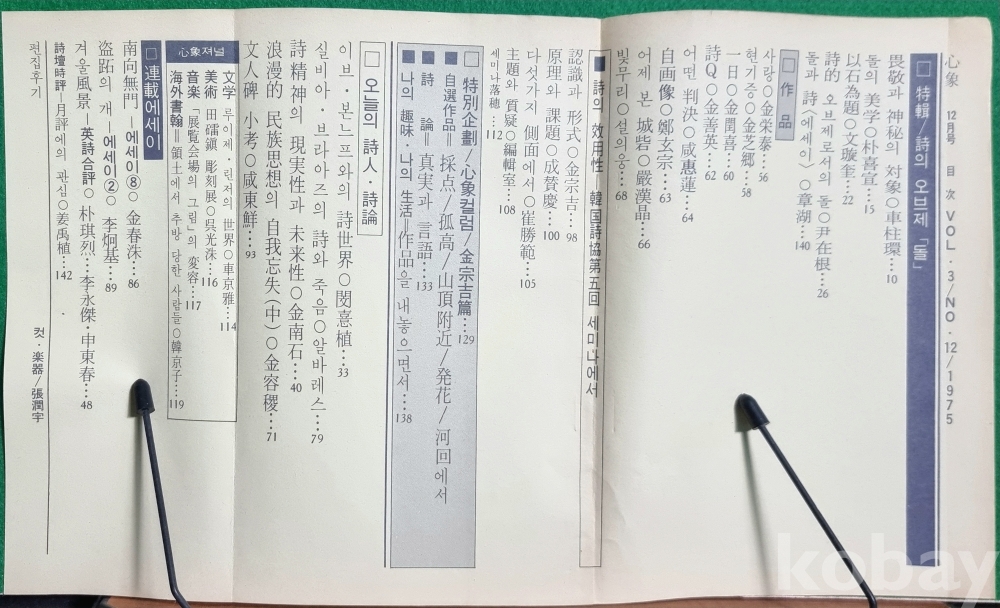 心象 12月号 目次 VOL·3/NO·12/1975
□ 特輯/詩의 오브제「돌」
畏敬과 神秘의 対象○車柱環…10
돌의 美学○朴喜宣…15
以石為題○文璇奎…22
詩的 오브제로서의 돌○尹在根…26
돌과 詩〈에세이〉○章湖…140
□ 作品
사랑○金栄泰…56
현기증○金芝郷…58
一日○金潤喜…60
詩Q○金善英…62
어떤 判決○咸惠蓮…64
自画像○鄭玄宗…63
어제 본 城砦○嚴漢晶…66
빚무리○설의웅…68
■ 詩의 效用性 韓国詩協第五回 세미나에서
認識과 形式○金宗吉…98
原理와 課題○成賛慶…100
다섯가지 側面에서○崔勝範…105
主題와 質疑○編輯室…108
세미나落穂…112
□ 特別企劃/心象컬럼/金宗吉篇…129
■ 自選作品‖採点/孤高/山頂附近/発花/河回에서
■ 詩論‖真実과 言語…133
■ 나의 趣味·나의 生活‖作品을 내놓으면서…138
□ 오늘의 詩人·詩論
이브·본느프와의 詩世界○閔憙植…33
실비아·브라아즈의 詩와 죽음○알바레스…79
詩精神의 現実性과 未来性○金南石…40
浪漫的 民族思想의 自我忘失(中)○金容稷…71
文人碑 小考○咸東鮮…93
心象져널
文学 루이제·린저의 世界○車京雅…114
美術 田礌鎭 彫刻展○呉光洙…116
音楽「展覧会場의 그림」의 変容…117
海外書翰‖領土에서 추방 당한 사람들○韓京子…119
□ 連載에세이
南向無門-에세이⑧○金春洙…86
盜跖의 개-에세이②○李炯基…89
겨울風景-英詩合評○朴琪烈…李永傑·申東春…48
詩壇時評-月評에의 관심○姜禹植…142
편집후기
컷·楽器/張潤宇
kobay